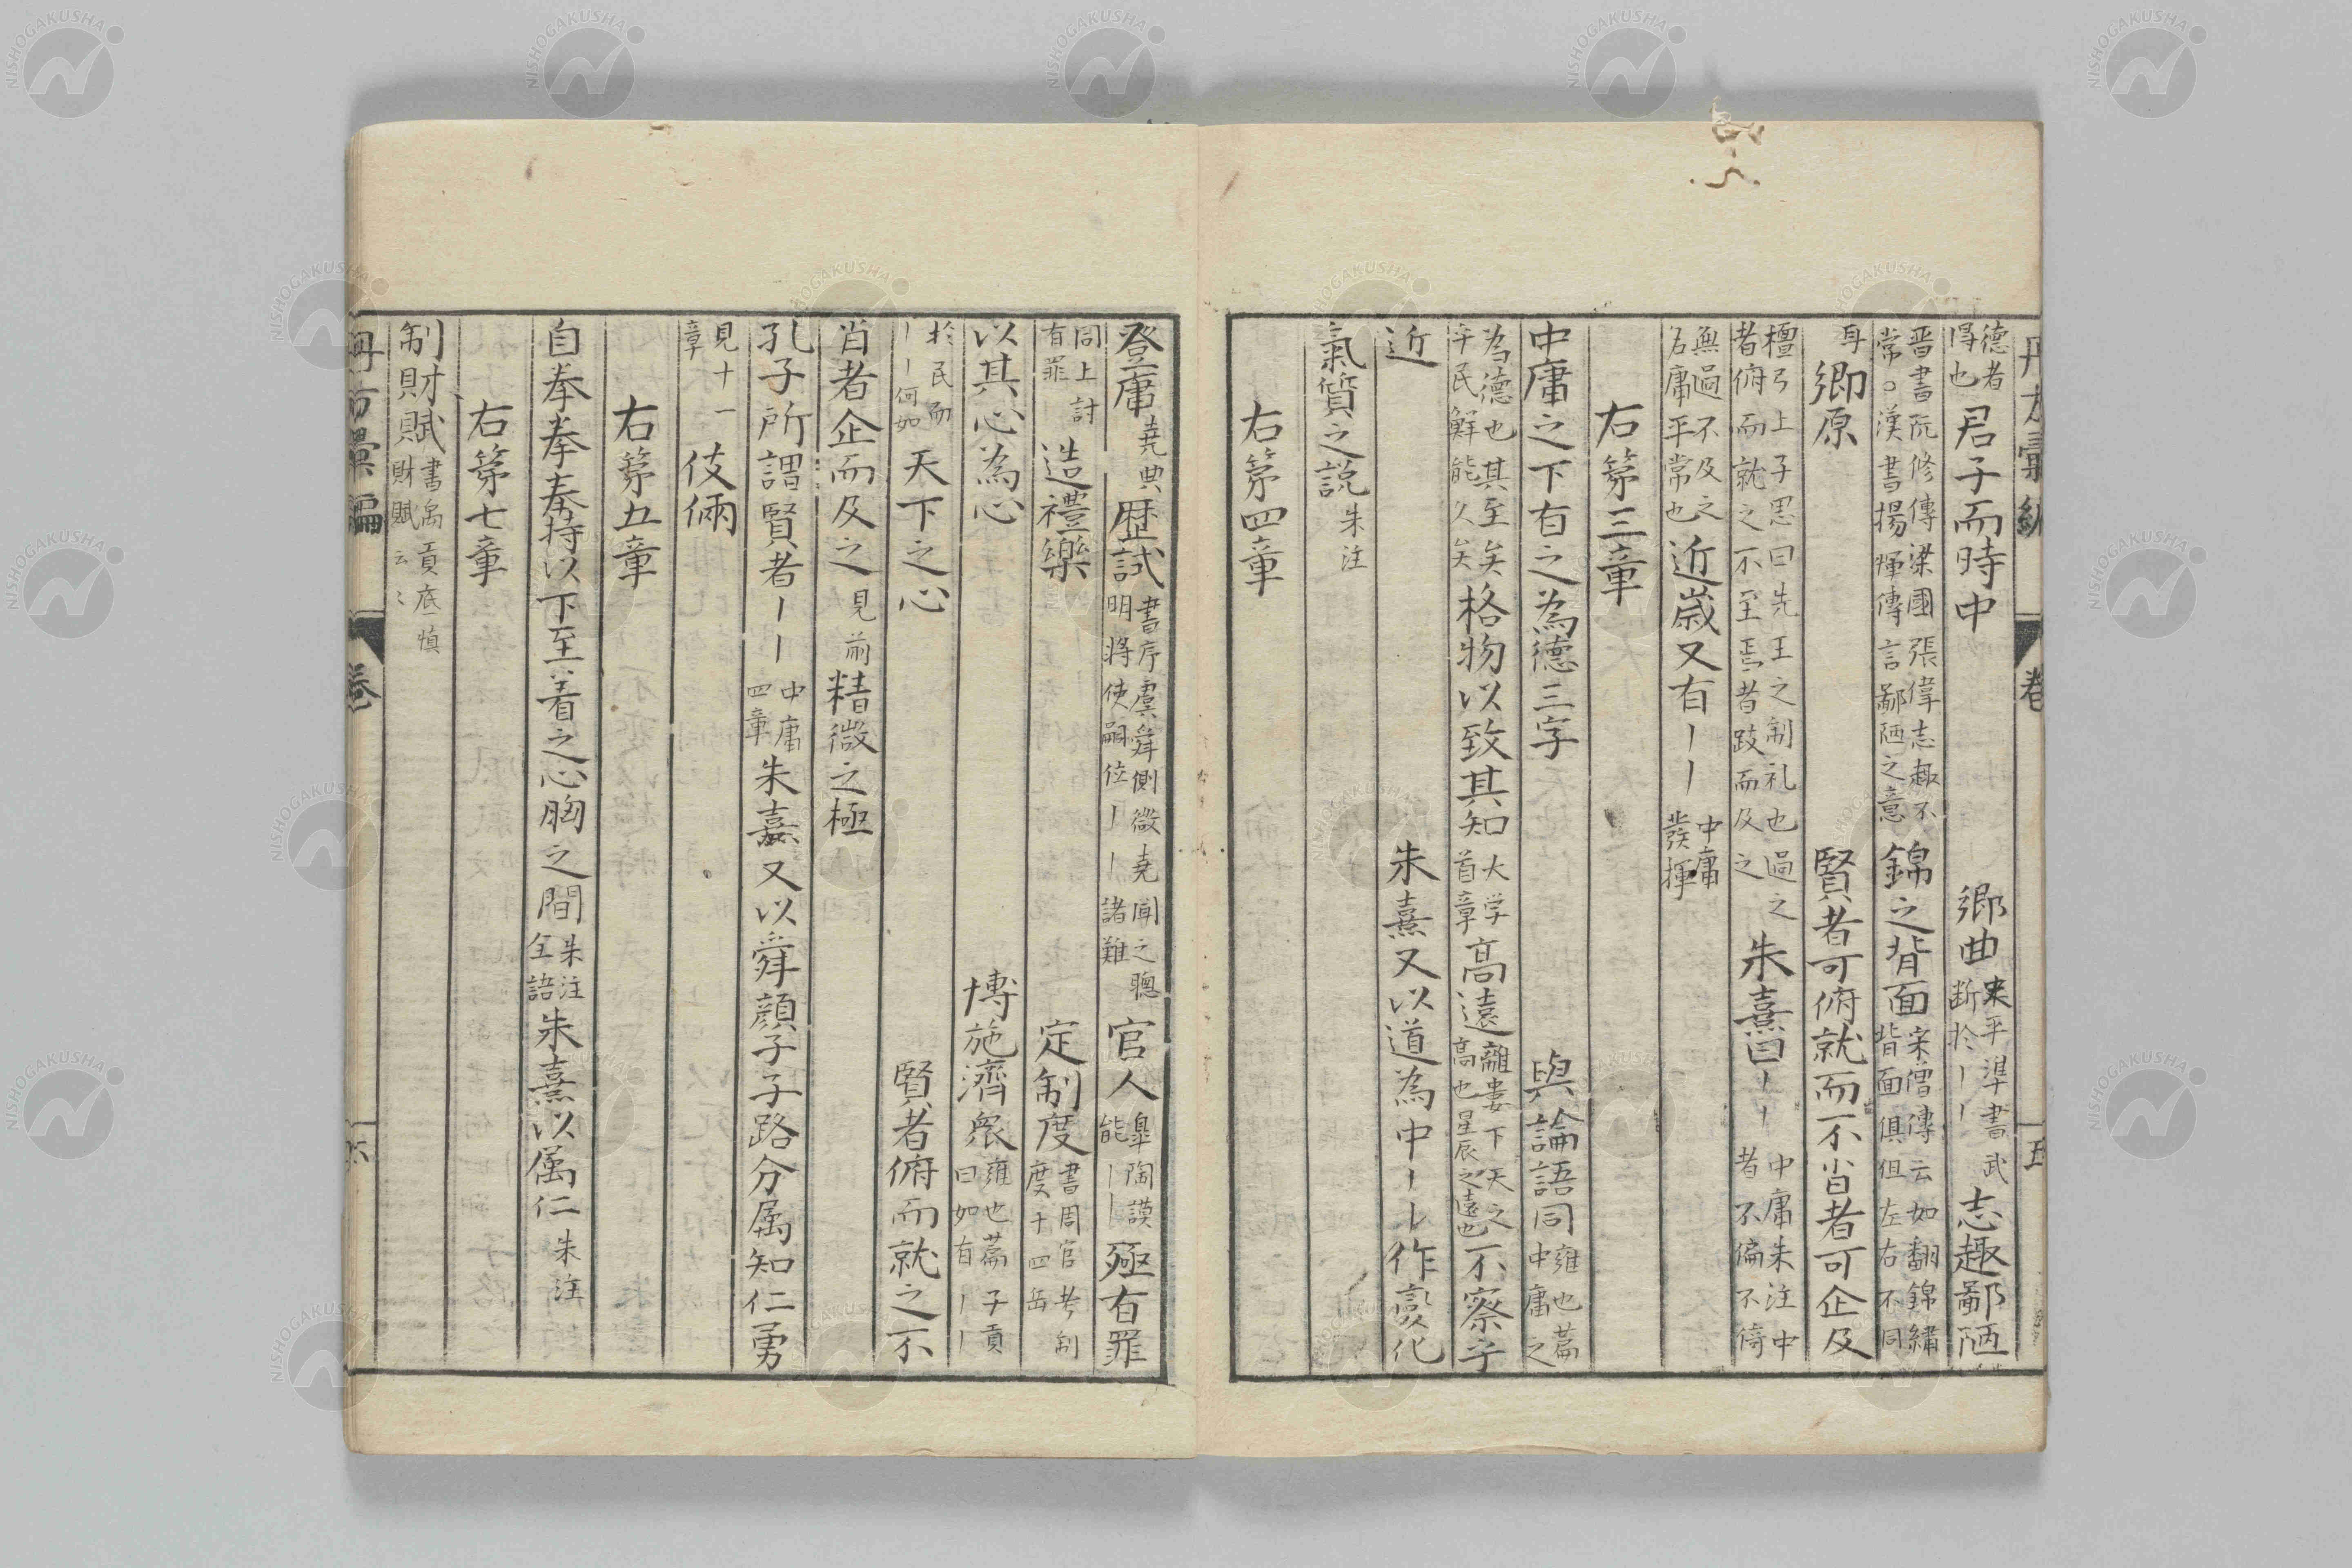 德者
得也
君子而時中
鄉曲
史平準書武
斷於丨丨
志趣鄙陋
晋書阮修傳梁國張偉志趣不
常○漢書揚惲傳言鄙陋之意
錦之背面
宋僧傳云如翻錦繡
背面俱但左右不同
耳
鄉原
賢者可俯就而不肖者可企及
檀弓上子思曰先王之制礼也過之
者俯而就之不至焉者跂而及之
朱熹曰丨丨
中庸朱注中
者不偏不倚
無過不及之
名庸平常也
近歲又有丨丨
中庸
發揮
右第三章
中庸之下有之為德三字
與論語同
雍也篇
中庸之
為德也其至矣
乎民鮮能久矣
格物以致其知
大学
首章
高遠
離婁下天之
高也星辰之遠也
不察乎
近
朱熹又以道為中丨丨作變化
氣質之說
朱注
右第四章
登庸
堯典
歷試
書序虞舜側微堯聞之聰
明將使嗣位丨丨諸難
官人
皐陶謨
能丨丨
殛有罪
同上討
有罪
造禮樂
定制度
書周官考制
度于四岳
以其心為心
博施濟衆
雍也篇子貢
曰如有丨丨
於民而
丨丨何如
天下之心
賢者俯而就之不
肖者企而及之
見前
精微之極
孔子所謂賢者丨丨
中庸
四章
朱熹又以舜顏子子路分属知仁勇
見十一
章
伎倆
右第五章
自拳拳奉持以下至着之心胸之間
朱注
全語
朱熹以属仁
朱注
右第七章
制財賦
書禹貢底慎
財賦云〻